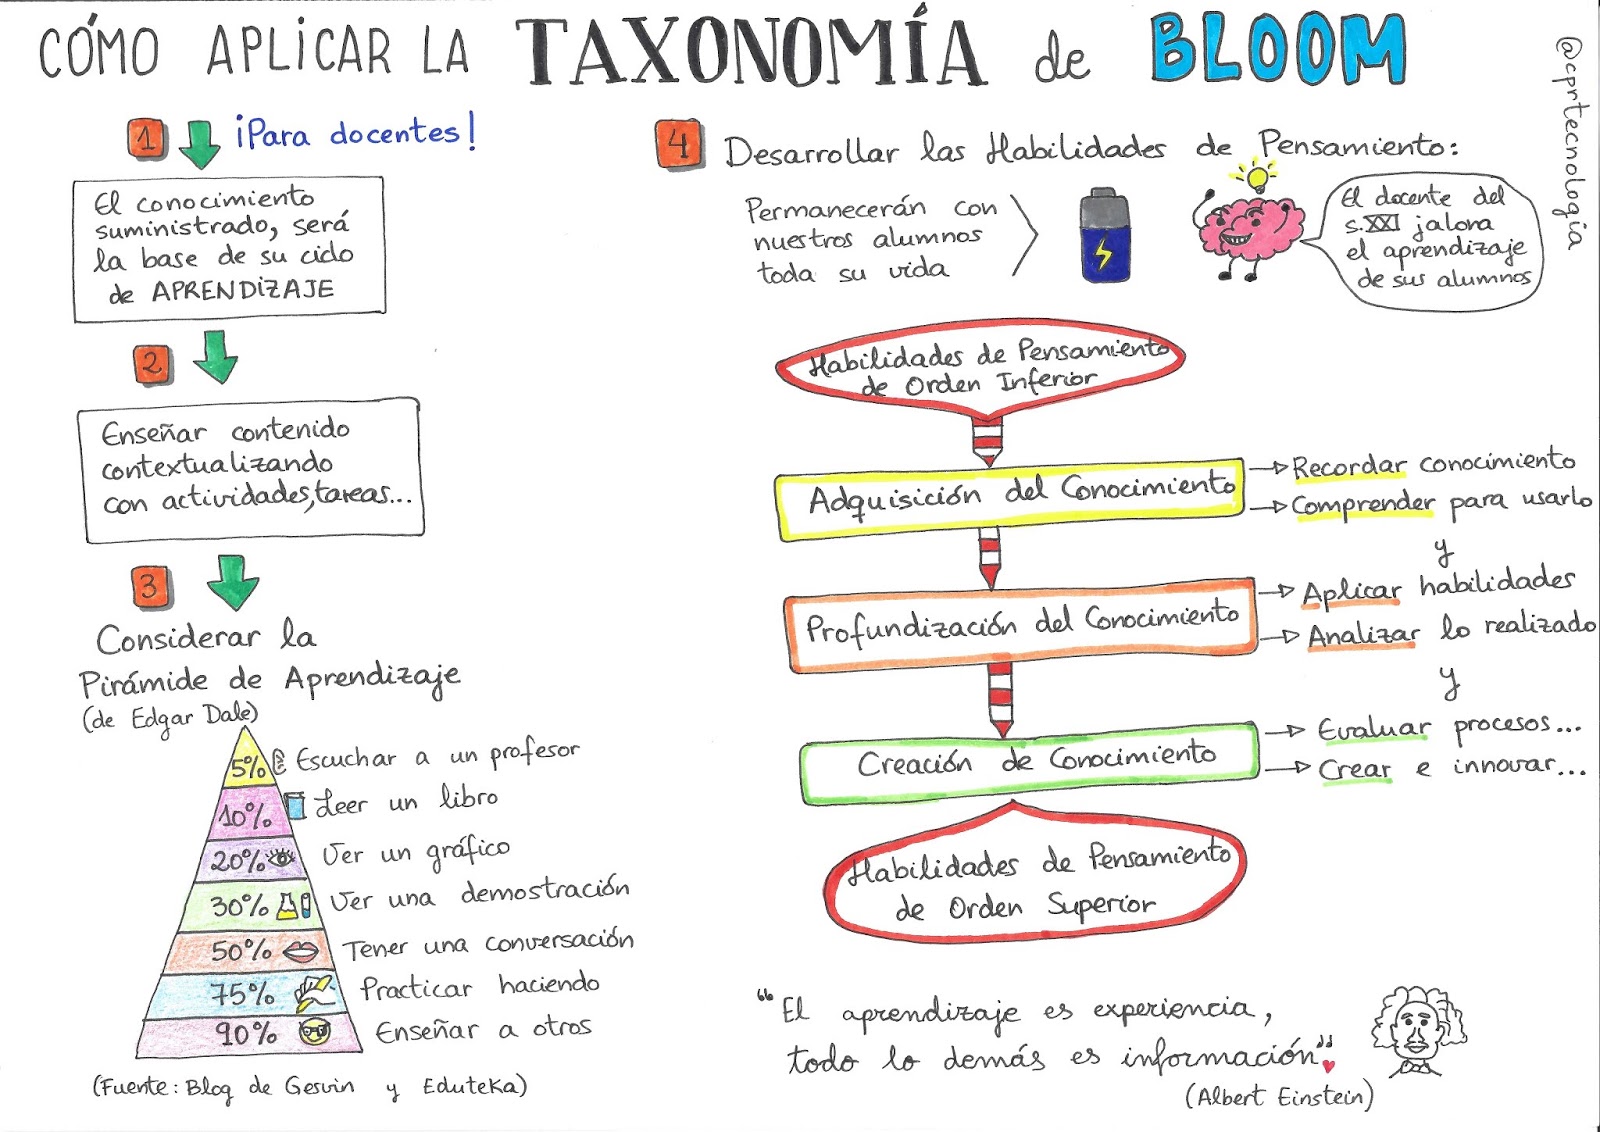 CÓMO APLICAR LA TAXONOMÍA de BLOOM
@cprtecnologia
1
¡Para docentes!
El conocimiento
suministrado, será
la base de su ciclo
de APRENDIZAJE
2
Enseñar contenido
contextualizando
con actividades, tareas...
3
Considerar la
Pirámide de Aprendizaje
(de Edgar Dale)
5% Escuchar a un profesor
10% Leer un libro
20% Ver un gráfico
30% Ver una demostración
50% Tener una conversación
75% Practicar haciendo
90% Enseñar a otros
(Fuente: Blog de Gesvin y Eduteka)
4
Desarrollar las Habilidades de Pensamiento:
Permanecerán con
nuestros alumnos
toda su vida
El docente del
s.XXI jalora
el aprendizaje
de sus alumnos
Habilidades de Pensamiento
de Orden Inferior
Adquisición del Conocimiento
Recordar conocimiento
Comprender para usarlo
y
Profundización del Conocimiento
Aplicar habilidades
Analizar lo realizado
y
Creación de Conocimiento
Evaluar procesos...
Crear e innovar...
Habilidades de Pensamiento
de Orden Superior
"El aprendizaje es experiencia,
todo lo demás es información"
(Albert Einstein)